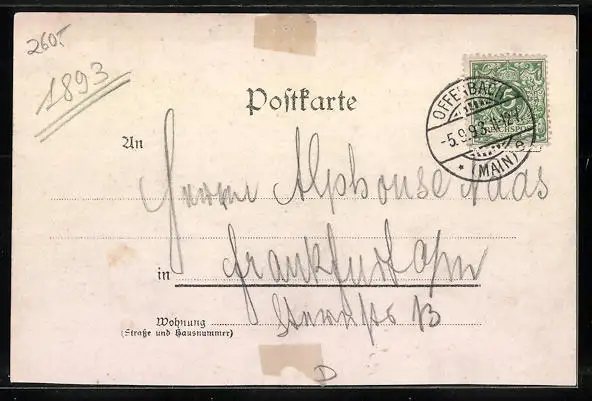 260.-
1893
Postkarte
5
REICHSPOST
OFFENBACH
-5.9.93.11-12V.
* (MAIN) e
An
Herrn Alphonse Maas
in Frankfurt a/m
Wohnung
(Straße und Hausnummer)
13
D